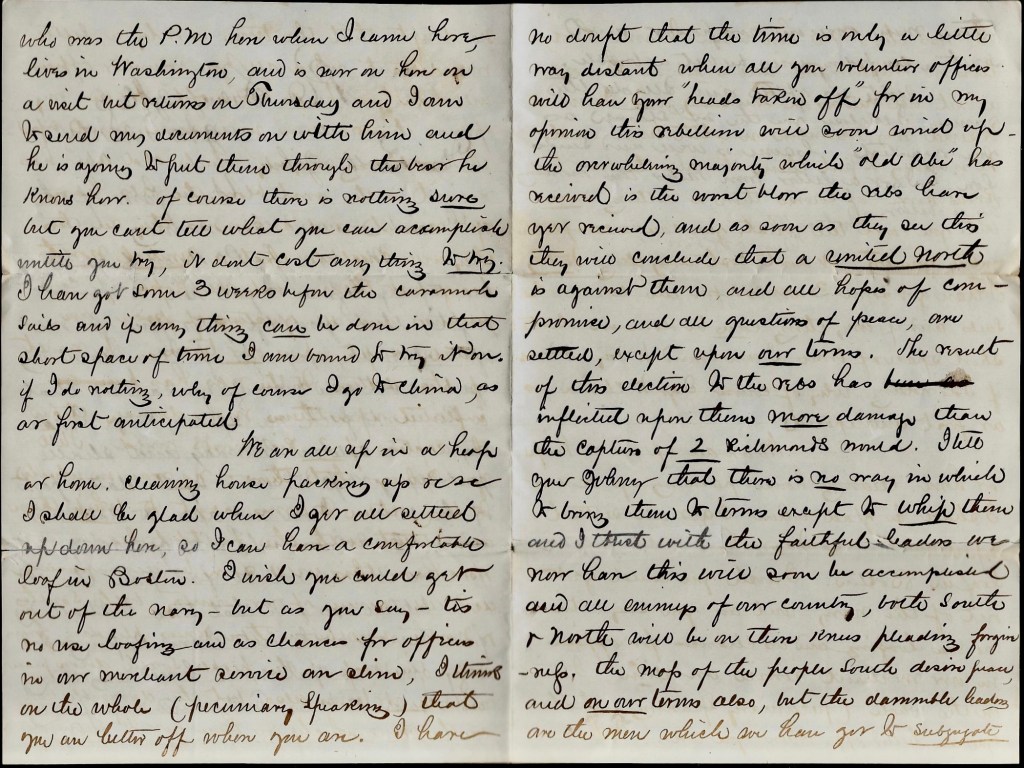 who was the P.M here when I came here,
lives in Washington, and is now on here on
a visit but returns on Thursday and I am
to send my documents on with him and
he is agoing to put them through the best he
knows how. of course there is nothing sure
but you cant tell what you can accomplish
until you try, it dont cost any thing to try.
I have got some 3 weeks before the
sails and if any thing can be done in that
short space of time I am bound to try it on.
if I do nothing, why of course I go to China, as
at first anticipated
We are all up in a heap
at home. cleaning house packing up &c &c
I shall be glad when I get all settled
up down here, so I can have a comfortable
loaf in Boston. I wish you could get
out of the navy - but as you say - tis
no use loafing and as chances for officers
in our merchant service are slim, I think
on the whole (pecuniary speaking) that
you are better off where you are. I have
no doubt that the time is only a little
way distant when all you volunteer officers
will have your "heads taken off" for in my
opinion this rebellion will soon wind up -
the overwhelming majority which "old Abe" has
received is the worst blow the rebs have
yet received, and as soon as they see this
they will conclude that a united North
is against them and all hopes of com-
promise, and all questions of peace, are
settled, except upon our terms. The result
of this election to the rebs has
inflicted upon them more damage than
the capture of 2 Richmonds would. I tell
you Johnny that there is no way in which
to bring them to terms except to whip them
and I trust with the faithful leaders we
now have this will soon be accomplished
and all enemys of our country, both South
& North will be on their knees pleading forgive
-ness. the mass of the people South desire peace,
and on our terms also, but the damnable leaders
are the men which we have got to subjugate